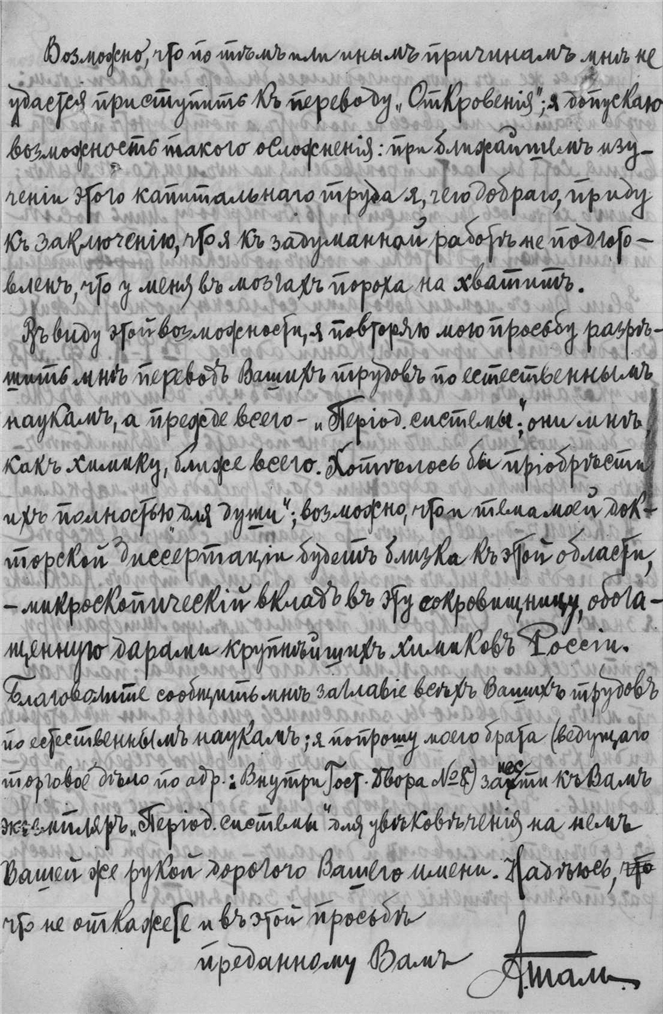 Возможно, что по тѣмъ или инымъ причинамъ мнѣ не
удастся приступить къ переводу „Откровенія“; я допускаю
возможность такого осложненія: при ближайшемъ изу-
ченіи этого капитальнаго труда я, чего добраго, приду
къ заключенію, что я къ задуманной работѣ не подгото-
вленъ, что у меня въ мозгахъ пороха на хватитъ.
Въ виду этой возможности, я повторяю мою просьбу разрѣ-
шить мнѣ переводъ Вашихъ трудовъ по естественнымъ
наукамъ, а прежде всего - „Період. системы“; они мнѣ,
какъ химику, ближе всего. Хотѣлось бы пріобрѣсти
ихъ полностью „для души“; возможно, что и тема моей док-
торской диссертаціи будетъ близка къ этой области,
- микроскопическій вкладъ въ эту сокровищницу, обога-
щенную дарами крупнѣйшихъ химиковъ Россіи.
Благоволите сообщить мнѣ заглавіе всѣхъ Вашихъ трудовъ
по естественнымъ наукамъ; я попрошу моего брата (ведущаго
торговое дѣло по адр.: Внутри Гост. Двора № 8) занести къ Вамъ
экземпляръ „Період. системы“ для увѣковѣченія на немъ
Вашей же рукой дорогого Вашего имени. Надѣюсь, что
что не откажете и въ этой просьбѣ
преданному Вамъ